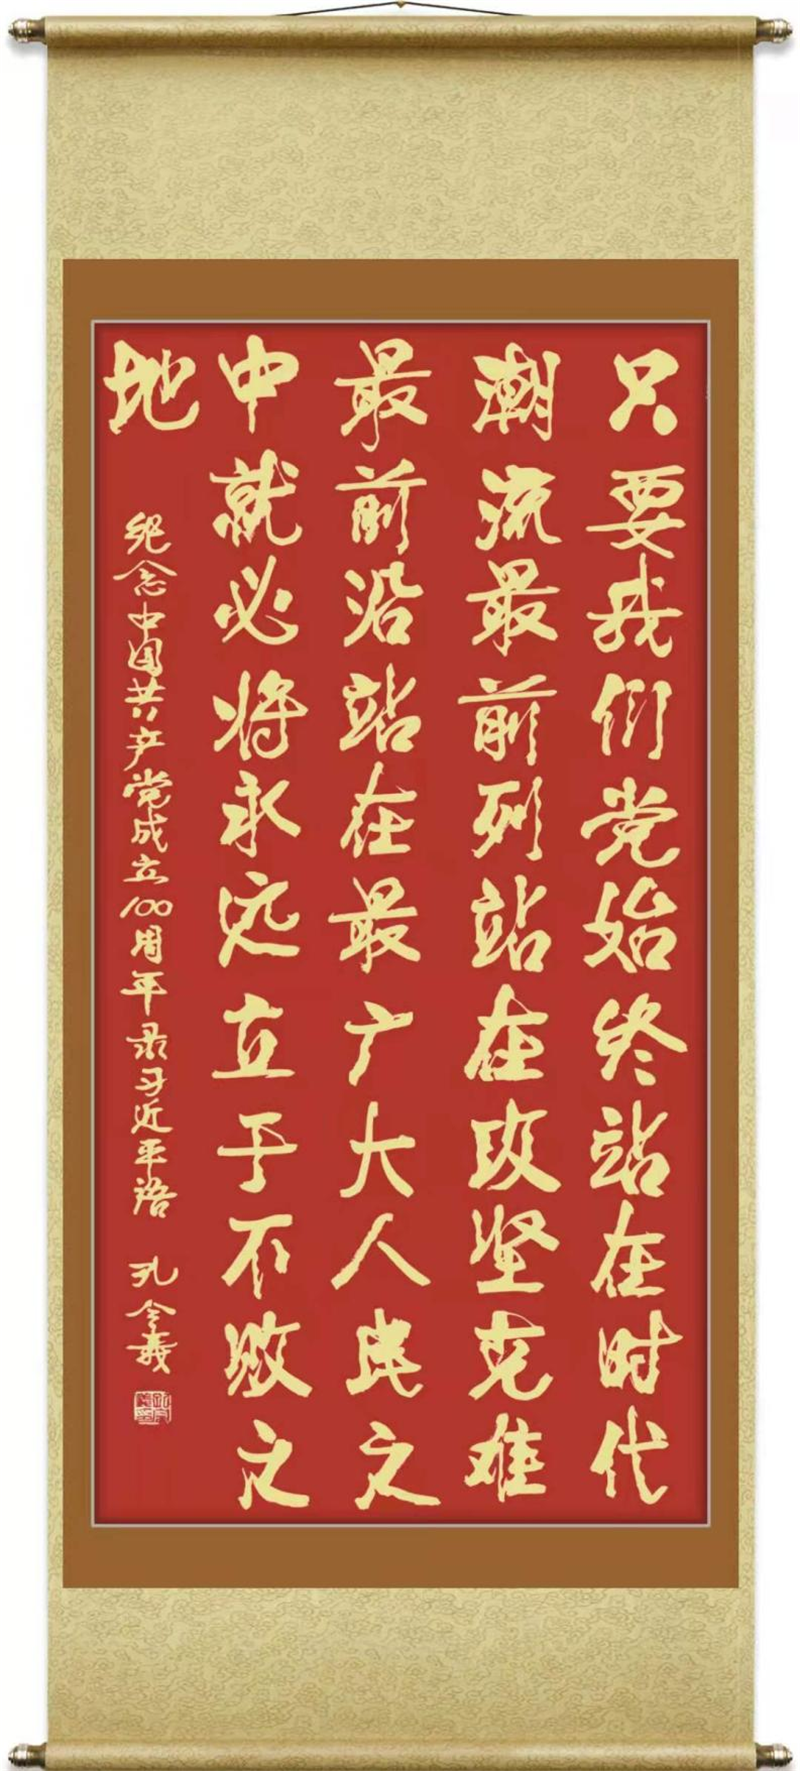 只要我们党始终站在时代
潮流最前列站在攻坚克难
最前沿站在最广大人民之
中就必将永远立于不败之
地
纪念中国共产党成立100周年录习近平语 孔令義